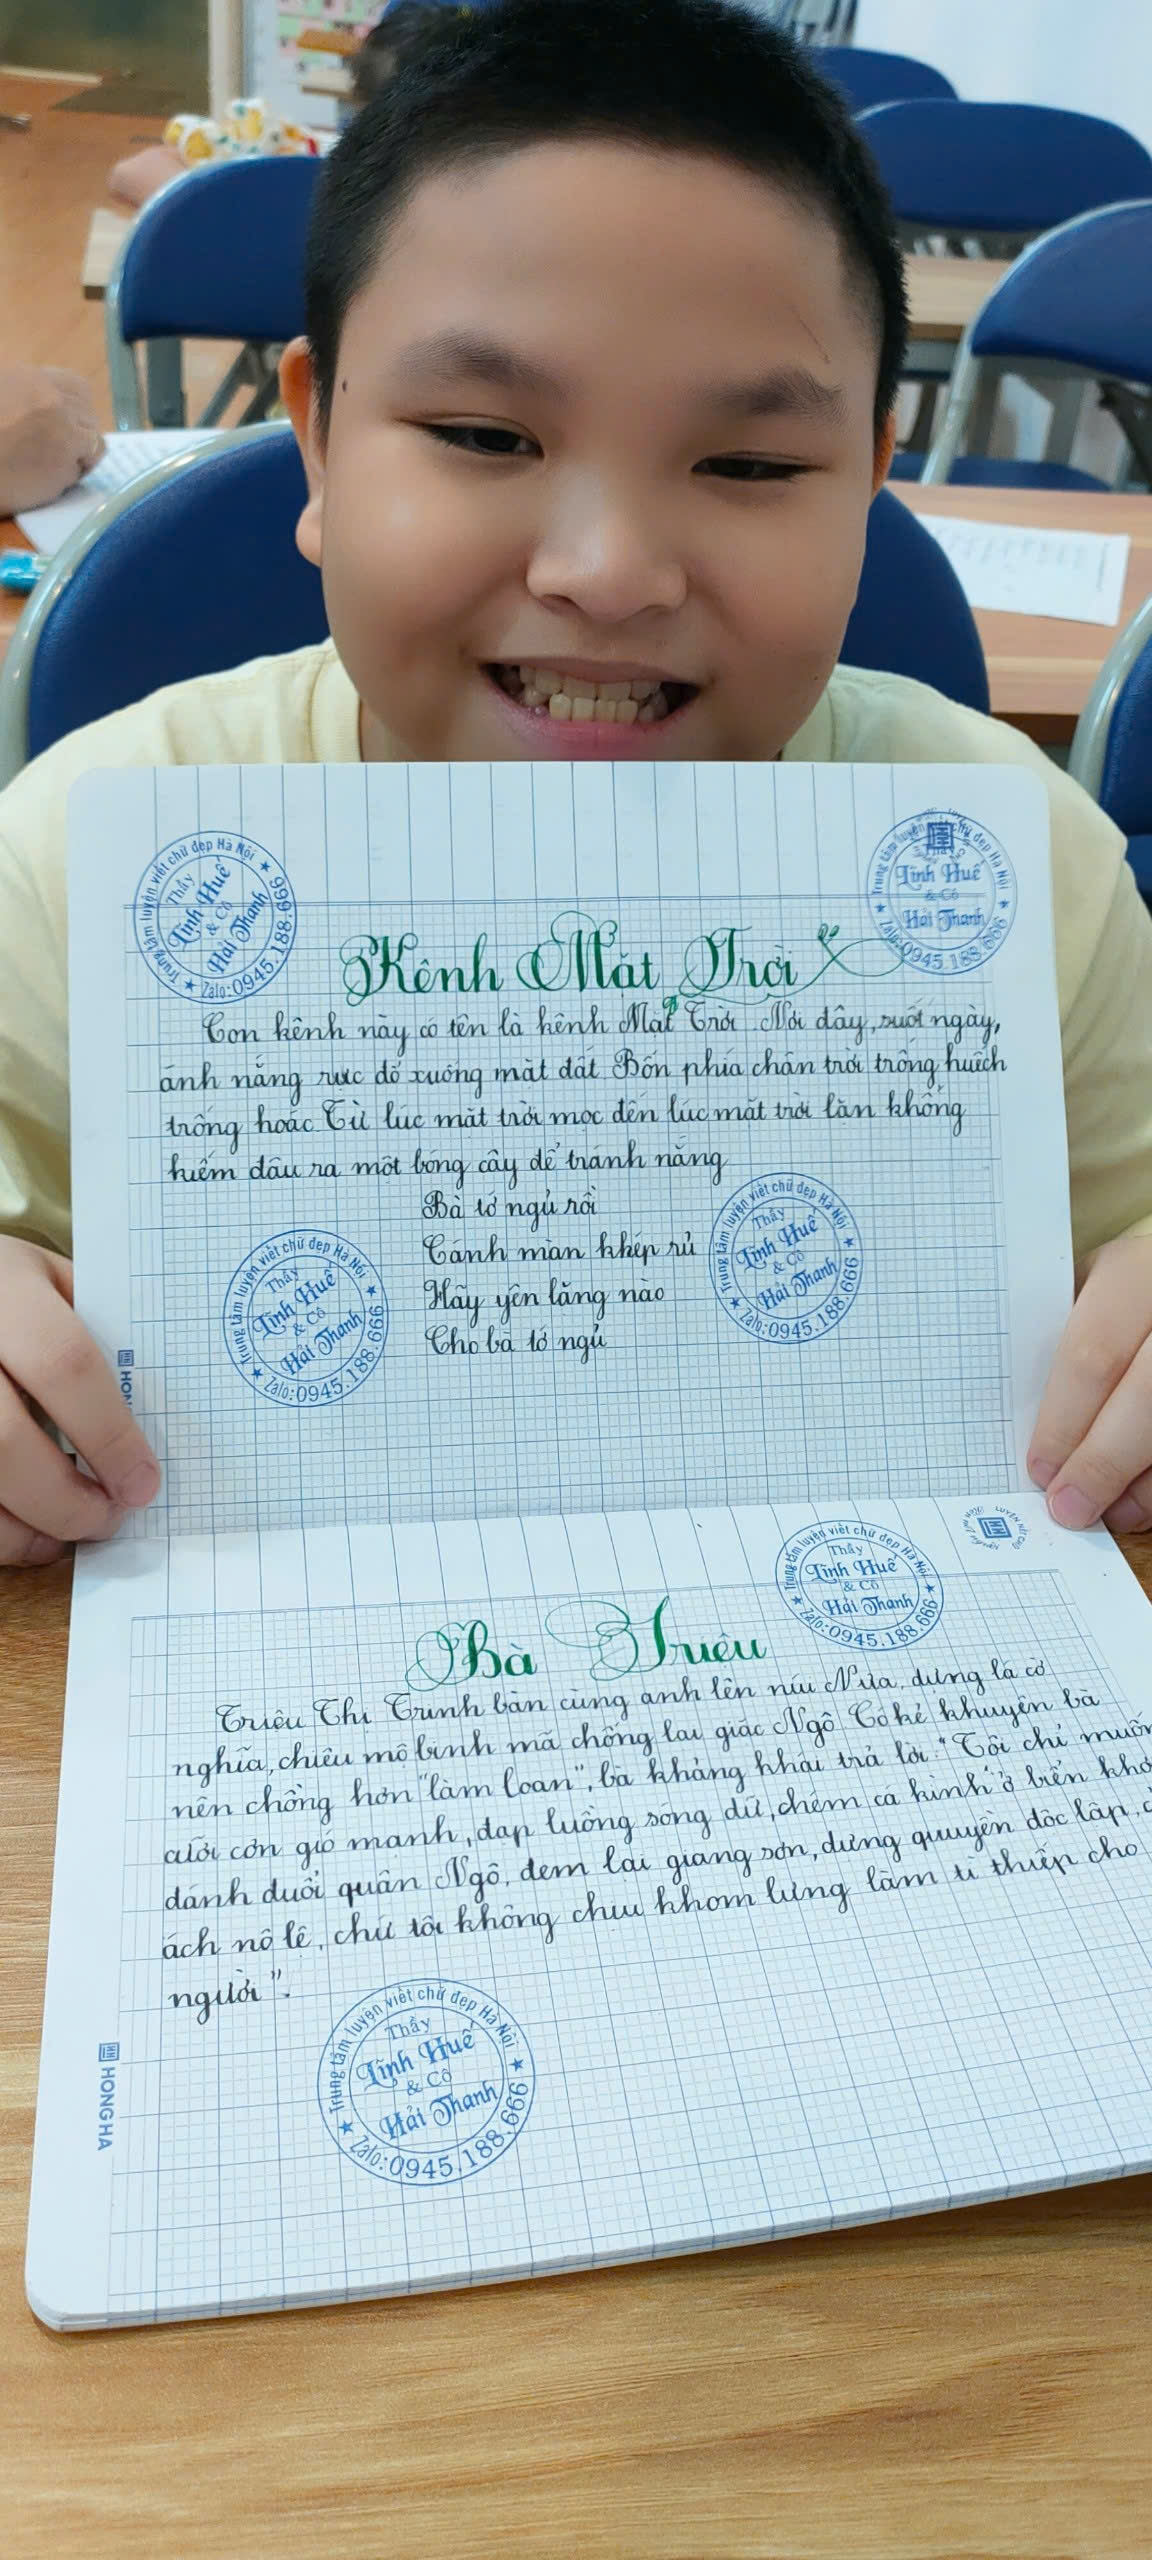 Trung tâm luyện viết chữ đẹp Hà Nội
Thầy
Lĩnh Huế
& Cô
Hải Thanh
Zalo: 0945.188.666
Trung tâm luyện viết chữ đẹp Hà Nội
Lĩnh Huế
& Cô
Hải Thanh
0945.188.666
Kênh Mặt Trời
Con kênh này có tên là kênh Mặt Trời. Nơi đây, suốt ngày,
ánh nắng rực đỏ xuống mặt đất. Bốn phía chân trời trống huếch
trống hoác. Từ lúc mặt trời mọc đến lúc mặt trời lặn không
kiếm đâu ra một bóng cây để tránh nắng
Bà tớ ngủ rồi
Cánh màn khép rủ
Hãy yên lặng nào
Cho bà tớ ngủ
Trung tâm luyện viết chữ đẹp Hà Nội
Thầy
Lĩnh Huế
& Cô
Hải Thanh
Zalo: 0945.188.666
Trung tâm luyện viết chữ đẹp Hà Nội
Thầy
Lĩnh Huế
& Cô
Hải Thanh
Zalo: 0945.188.666
HON
Trung tâm luyện viết chữ đẹp Hà Nội
Thầy
Lĩnh Huế
& Cô
Hải Thanh
Zalo: 0945.188.666
LUYỆN NÉT CHỮ
Bà Triệu
Triệu Thị Trinh bàn cùng anh lên núi Nưa, dựng lá cờ
nghĩa, chiêu mộ binh mã chống lại giặc Ngô. Có kẻ khuyên bà
nên chồng hơn "làm loạn", bà khảng khái trả lời: "Tôi chỉ muốn
cưỡi cơn gió mạnh, đạp luồng sóng dữ, chém cá kình ở biển
đánh đuổi quân Ngô, đem lại giang sơn, dựng quuyền độc lập,
ách nô lệ, chứ tôi không chịu khom lưng làm tì thiếp cho
người".
Trung tâm luyện viết chữ đẹp Hà Nội
Thầy
Lĩnh Huế
& Cô
Hải Thanh
Zalo: 0945.188.666
HONG HA